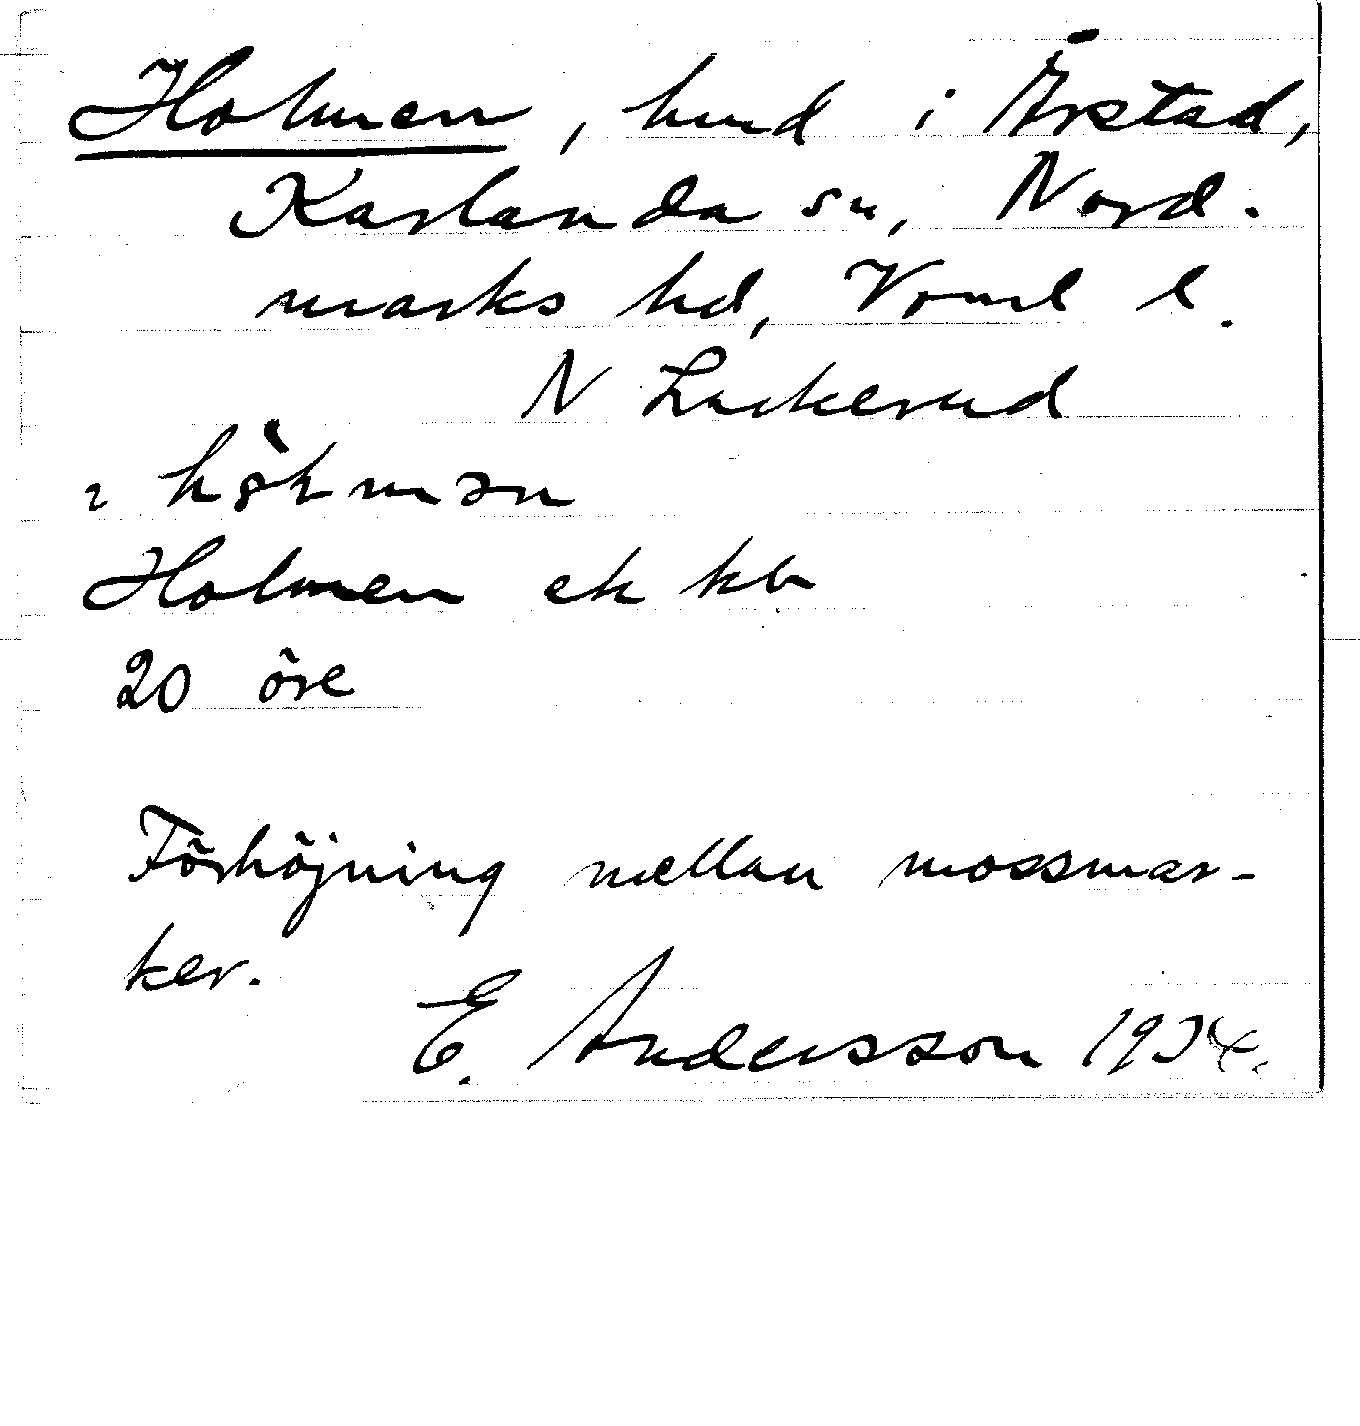 Holmen, hmd i Årstad,
Karlanda sn, Nord-
marks hd, Vrml l.
N Luckerud
Holmen ek kb
20 öre
Förhöjning mellan mossmar-
ker.
E. Andersson 1934.